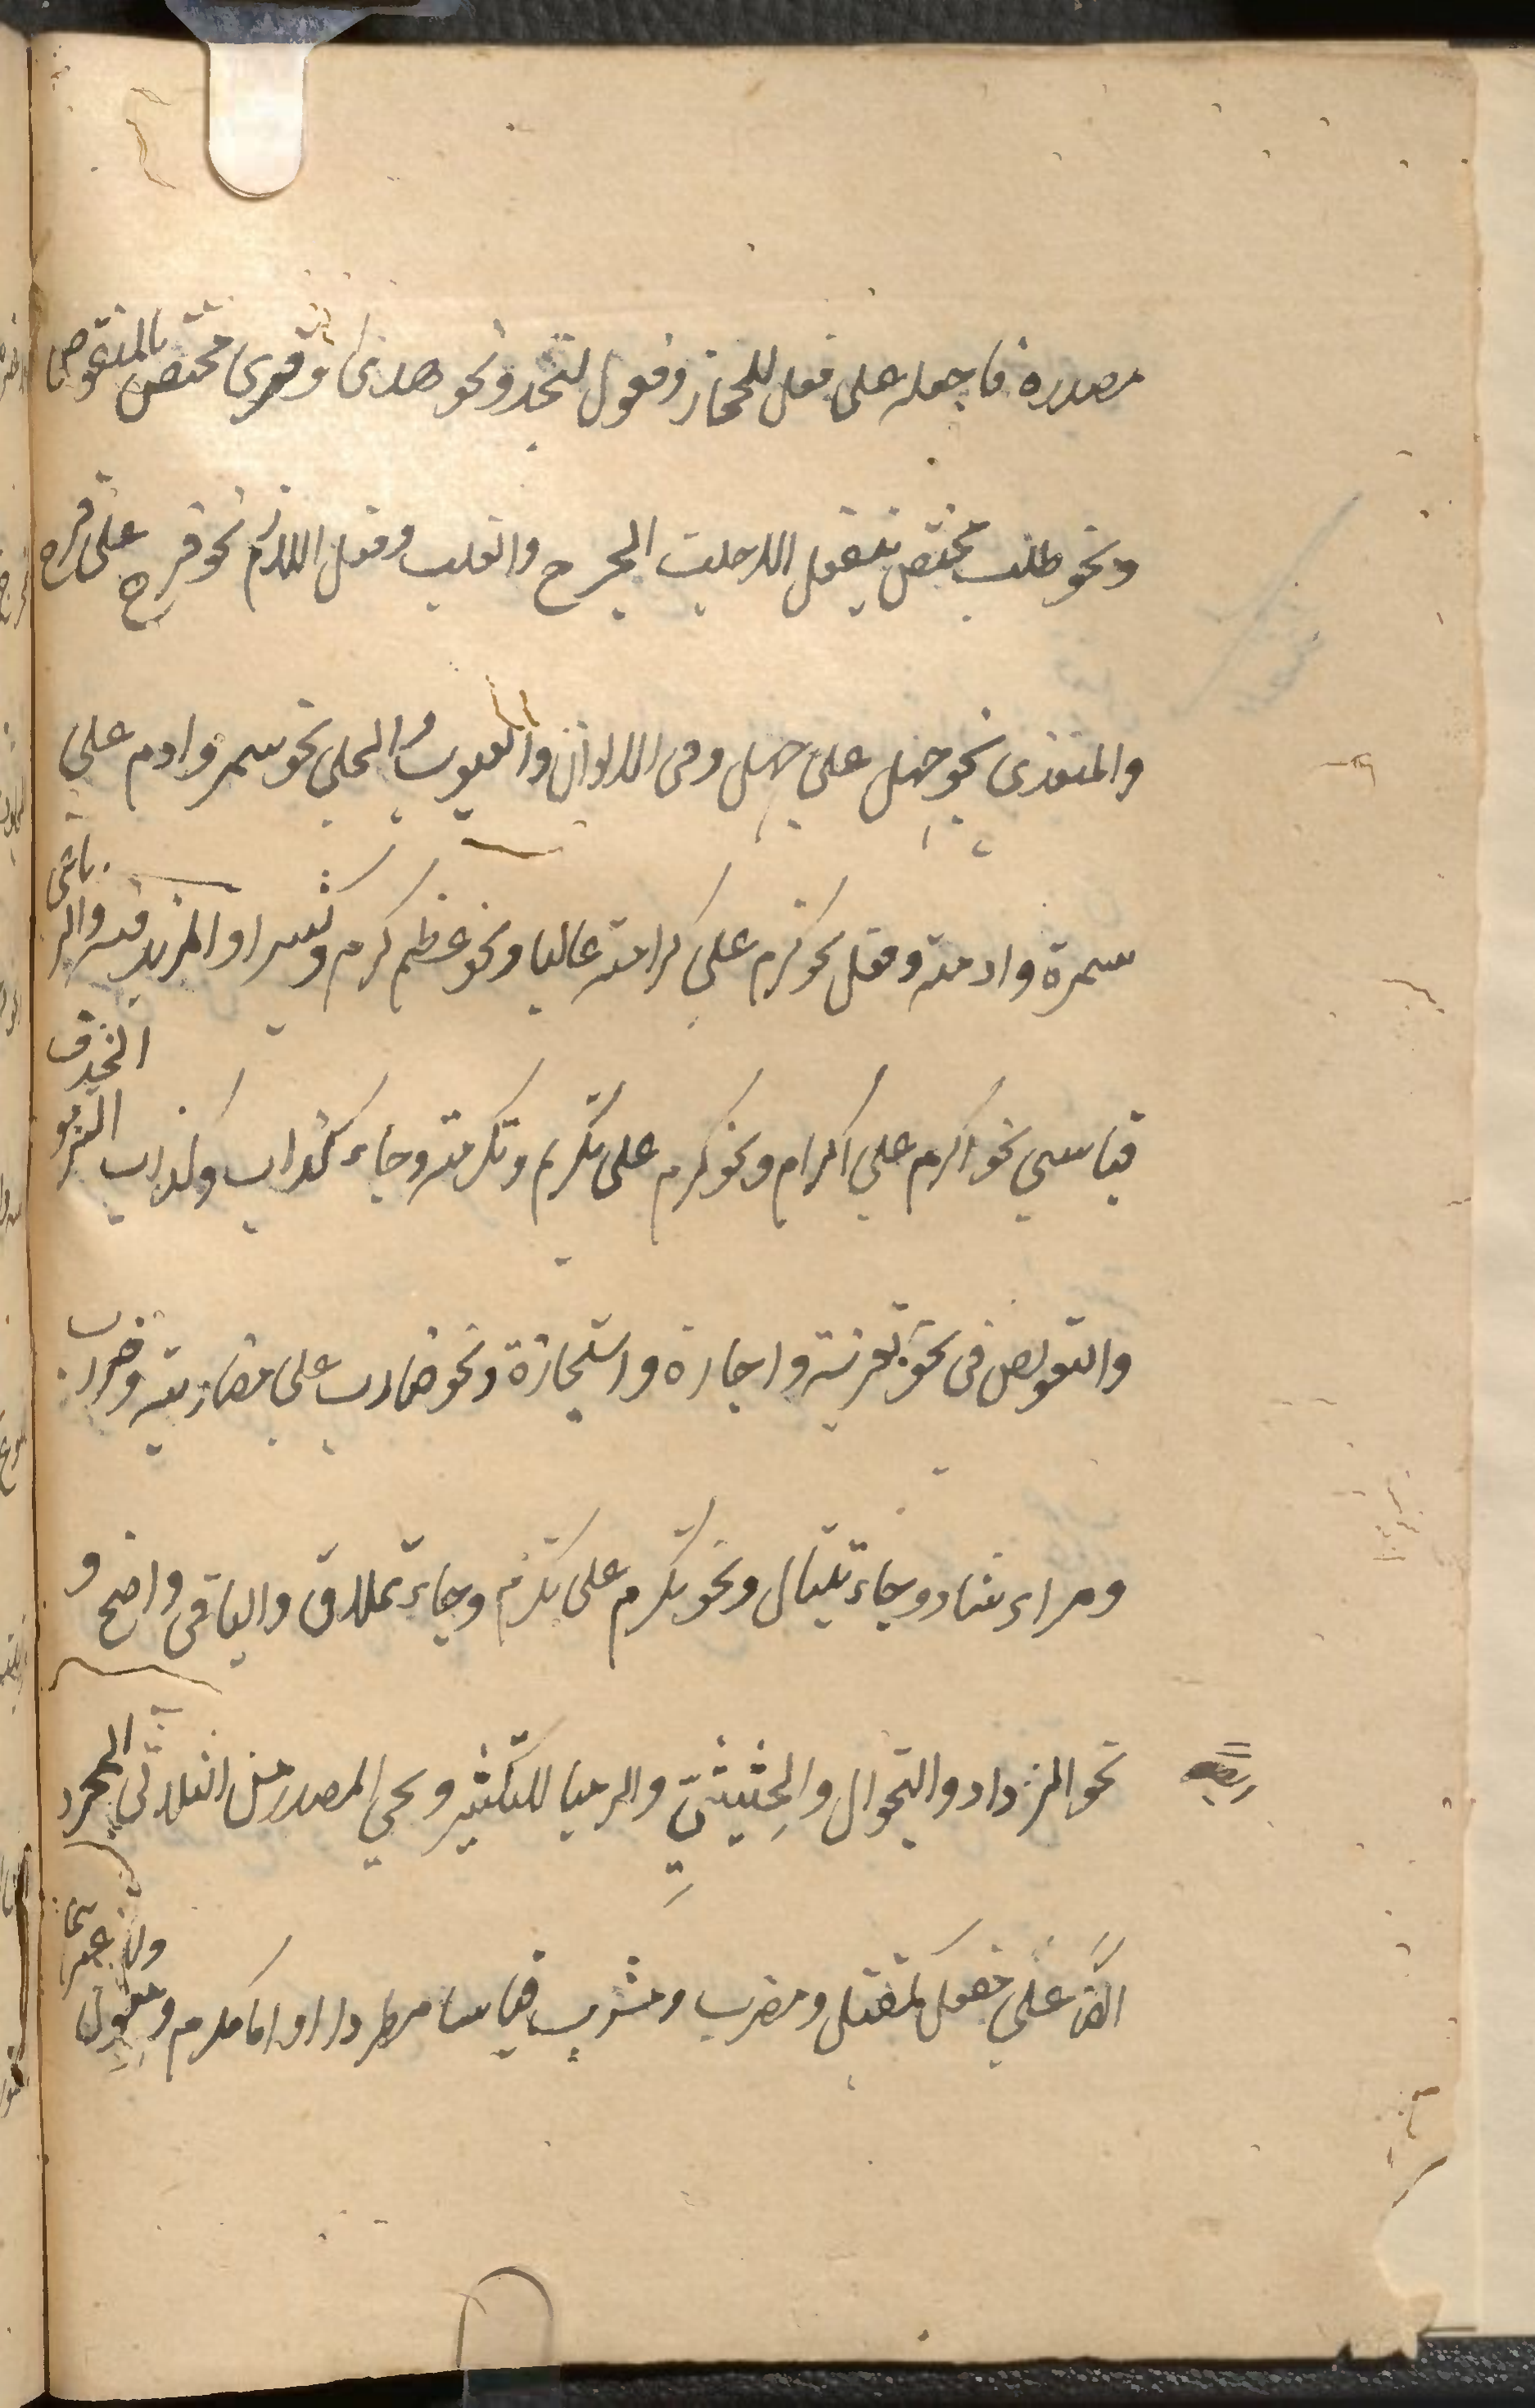 مصدره فاجعله على فعل للحجاز وفعول لنجد ونحو هدى وقرى مختص بالمنقوص
ونحو طلب مختص بيفعل الا جلب الجرح والغلب وفعل اللازم نحو فرح على فرح
والمتعدى نحو جهل على جهل وفى الالوان والعيوب والحلى نحو سمر وادم على
سمرة وادمة وفعل نحو كرم على كرامة غالبا ونحو عظم كرم كثيرا والمزيد فيه والرباعى
قياسي نحو اكرم على اكرام ونحو كرم على تكريم وتكرمة وجاء كذاب وكذاب التزمو الحذف
والتعويض فى نحو تعزية واجازة واستجازة ونحو ضارب على مضاربة وضراب
ومراء شاذ وجاء قيتال ونحو تكرم على تكرم وجاء تملاق والباقى واضح و
نحو الترداد والتجوال والحثيثى والرميا للتكثير ويجي المصدر من الثلاثي المجرد
ايضا على مفعل كمقتل ومضرب ومشرب قياسا مطردا واما مكرم ومعون ولا غيرهما